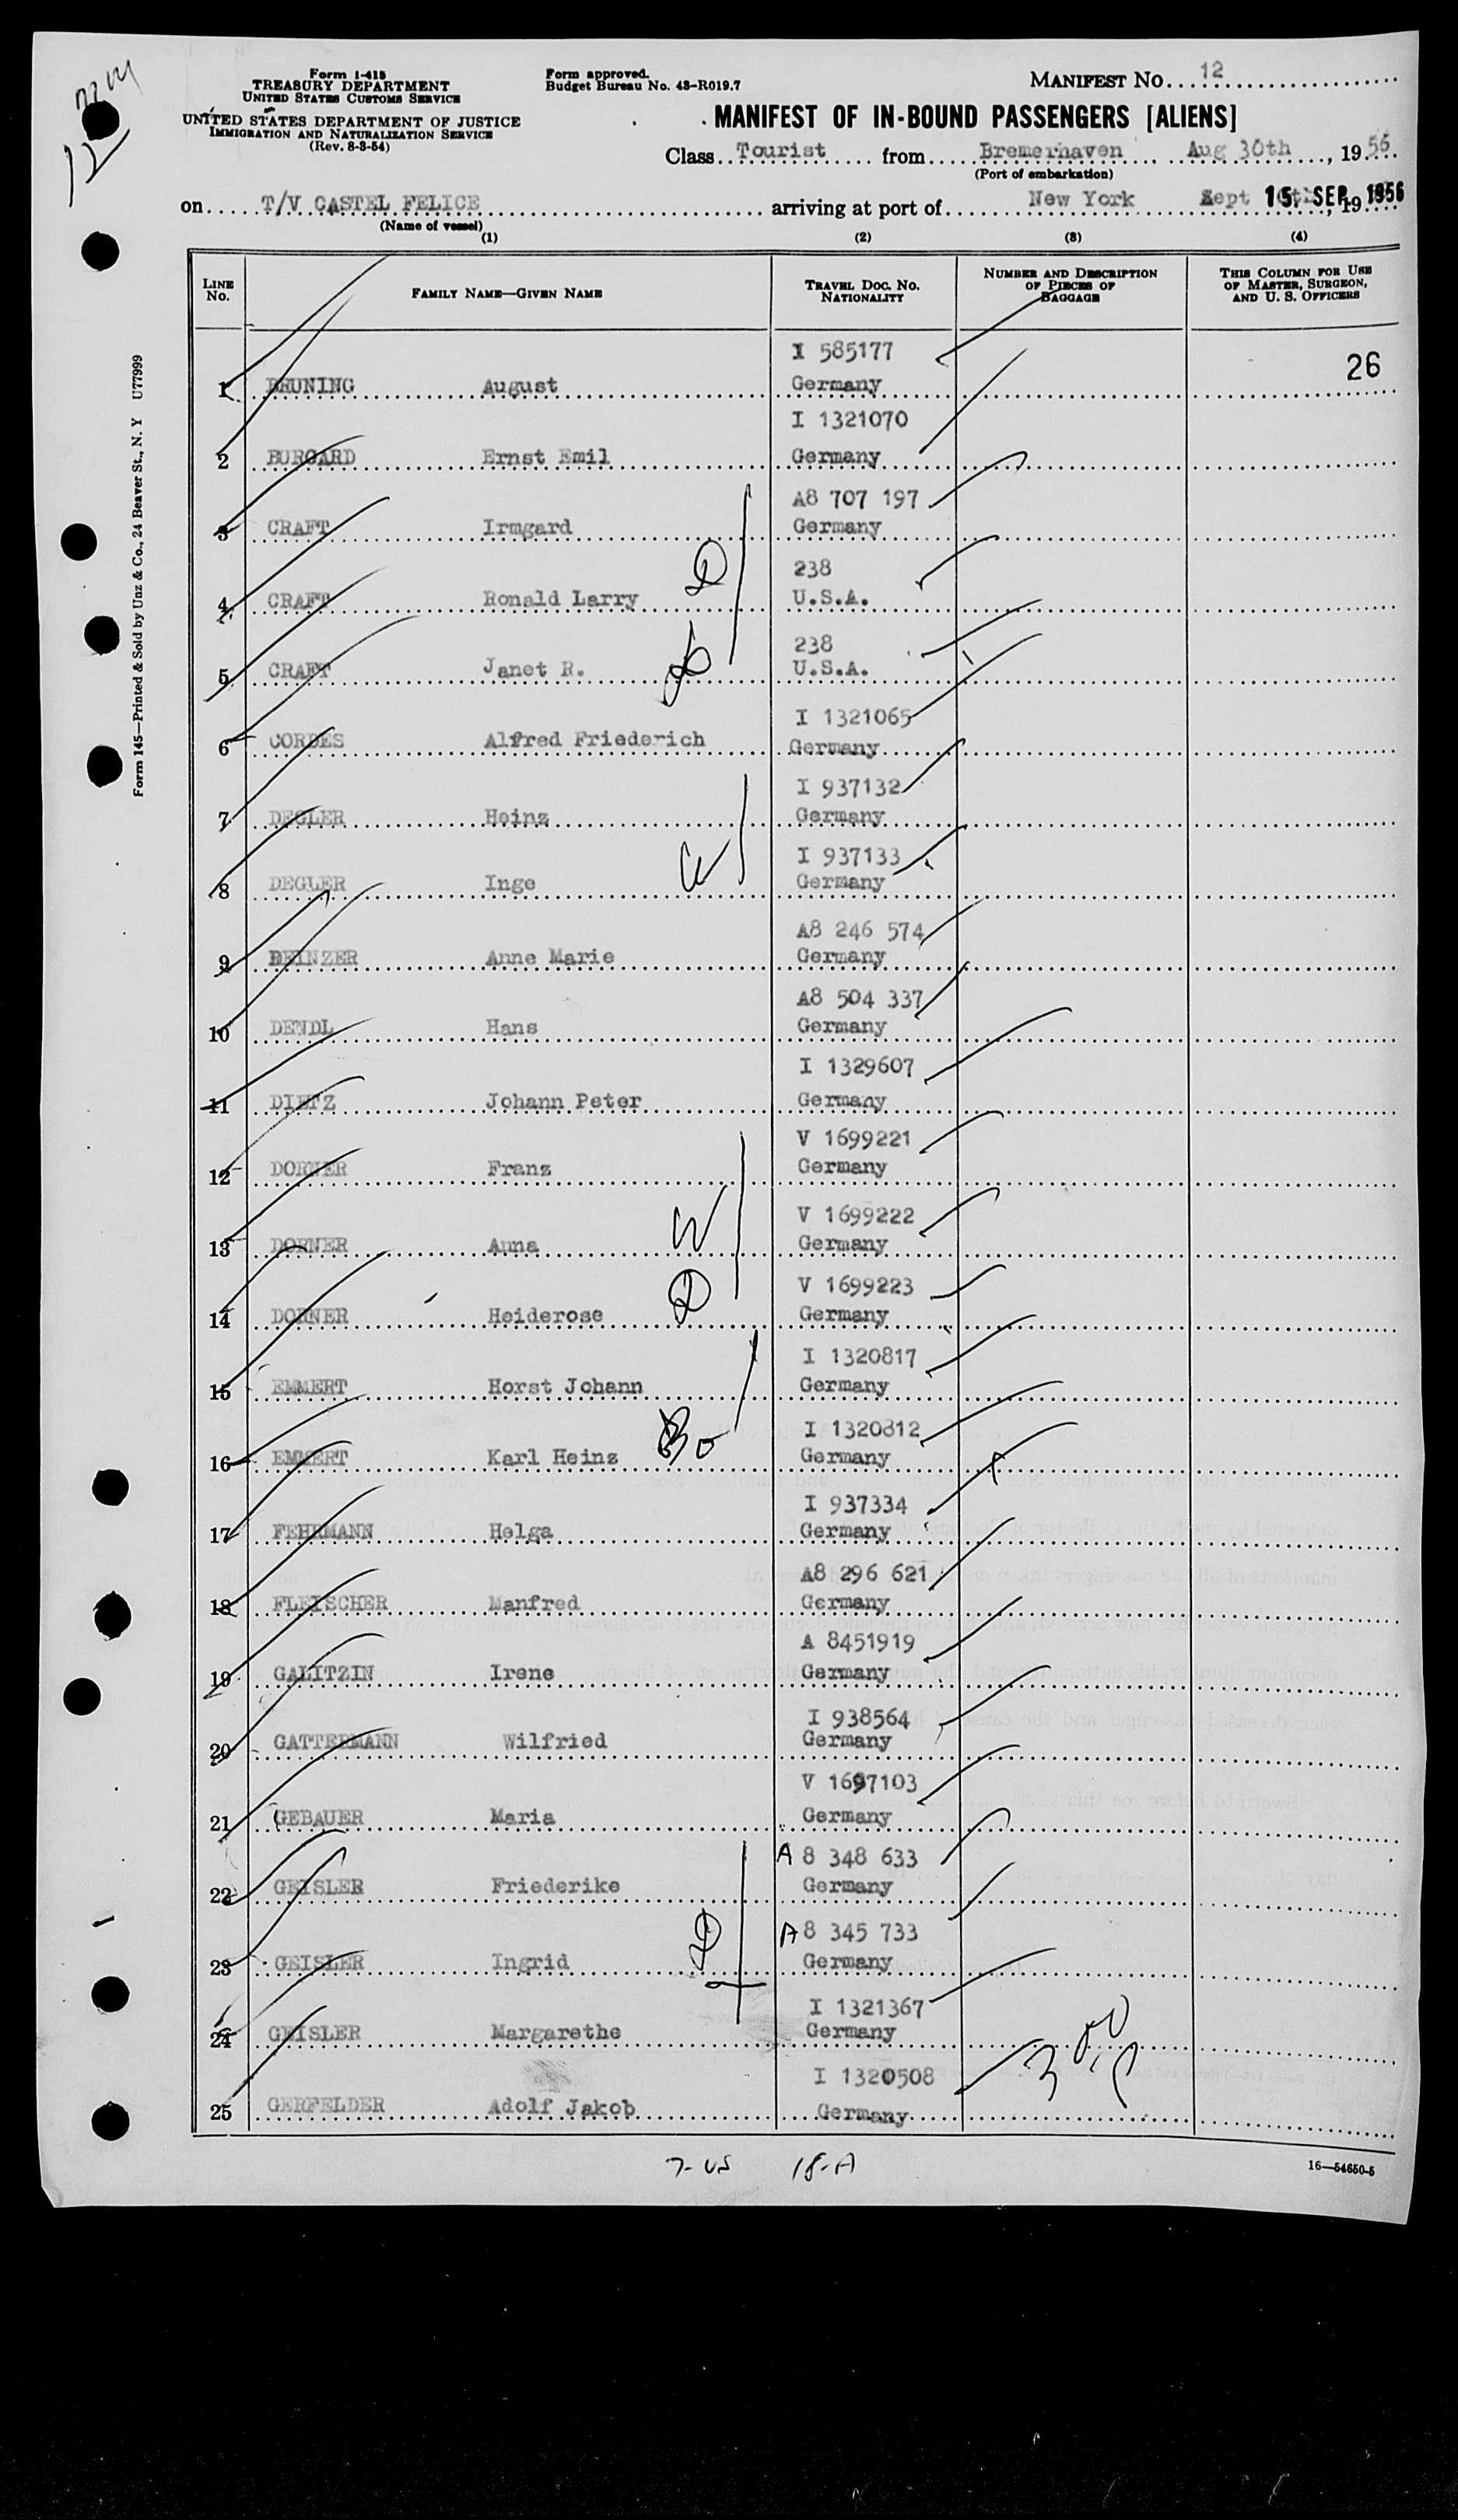 Form I-415
TREASURY DEPARTMENT
UNITED STATES CUSTOMS SERVICE
UNITED STATES DEPARTMENT OF JUSTICE
IMMIGRATION AND NATURALIZATION SERVICE
(Rev. 8-3-54)
Form approved.
Budget Bureau No. 43-R019.7
MANIFEST NO. 12
MANIFEST OF IN-BOUND PASSENGERS [ALIENS]
Class Tourist from Bremerhaven Aug 30th, 1956
(Port of embarkation)
on T/V CASTEL FELICE arriving at port of New York Sept 15. SEP. 1956, 19
(Name of vessel)
(1) (2) (3) (4)
LINE NO. FAMILY NAME—GIVEN NAME TRAVEL DOC. NO. NATIONALITY NUMBER AND DESCRIPTION OF PIECES OF BAGGAGE THIS COLUMN FOR USE OF MASTER, SURGEON, AND U. S. OFFICERS
I 585177
26
1 BRUNING August Germany
I 1321070
2 BURGARD Ernst Emil Germany
A8 707 197
3 CRAFT Irmgard Germany
238
4 CRAFT Ronald Larry U.S.A.
238
5 CRAFT Janet R. U.S.A.
I 1321065
6 CORDES Alfred Friederich Germany
I 937132
7 DEGLER Heinz Germany
I 937133
8 DEGLER Inge Germany
A8 246 574
9 DEINZER Anne Marie Germany
A8 504 337
10 DENDL Hans Germany
I 1329607
11 DIETZ Johann Peter Germany
V 1699221
12 DORNER Franz Germany
V 1699222
13 DORNER Anna W Germany
V 1699223
14 DORNER Heiderose D Germany
I 1320817
15 EMMERT Horst Johann Germany
I 1320812
16 EMMERT Karl Heinz Bo Germany
I 937334
17 FEHRMANN Helga Germany
A8 296 621
18 FLEISCHER Manfred Germany
A 8451919
19 GALITZIN Irene Germany
I 938564
20 GATTERMANN Wilfried Germany
V 1697103
21 GEBAUER Maria Germany
A 8 348 633
22 GEISLER Friederike Germany
A 8 345 733
23 GEISLER Ingrid D Germany
I 1321367
24 GEISLER Margarethe Germany
I 1320508
25 GERFELDER Adolf Jakob Germany
7-US 18-A
16—54650-5
Form 145—Printed & Sold by Unz & Co., 24 Beaver St., N. Y U77999
12